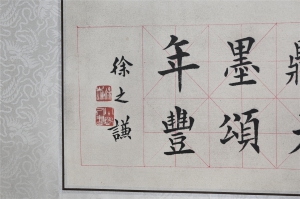 墨頌
年豐
徐之謙